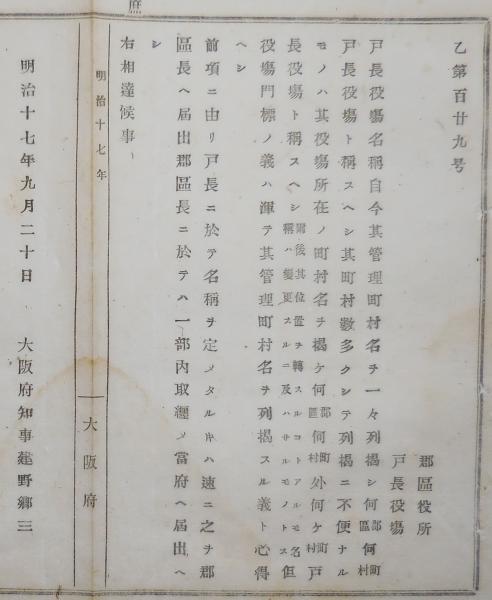 庶
乙第百廿九号
郡區役所
戸長役塲
戸長役塲名稱自今其管理町村名チ一々列揭シ何郡區何町村
戸長役塲ト稱スヘシ其町村數多クシテ列揭ニ不便ナル
モノハ其役塲所在ノ町村名チ揭ケ何郡區何町村外何ケ町村戸
長役塲ト稱スヘシ爾後其位置ヲ轉スルコトアルモ名稱ハ變更スルニ及ハサルモノトス但
役塲門標ノ義ハ渾テ其管理町村名ヲ列揭スル義ト心得
ヘシ
前項ニ由リ戸長ニ於テ名稱ヲ定メタルキハ速ニ之ヲ郡
區長ヘ届出郡區長ニ於テハ一部内取纒メ當府ヘ届出ヘ
シ
右相達候事
明治十七年
大阪府
明治十七年九月二十日　大阪府知事建野郷三